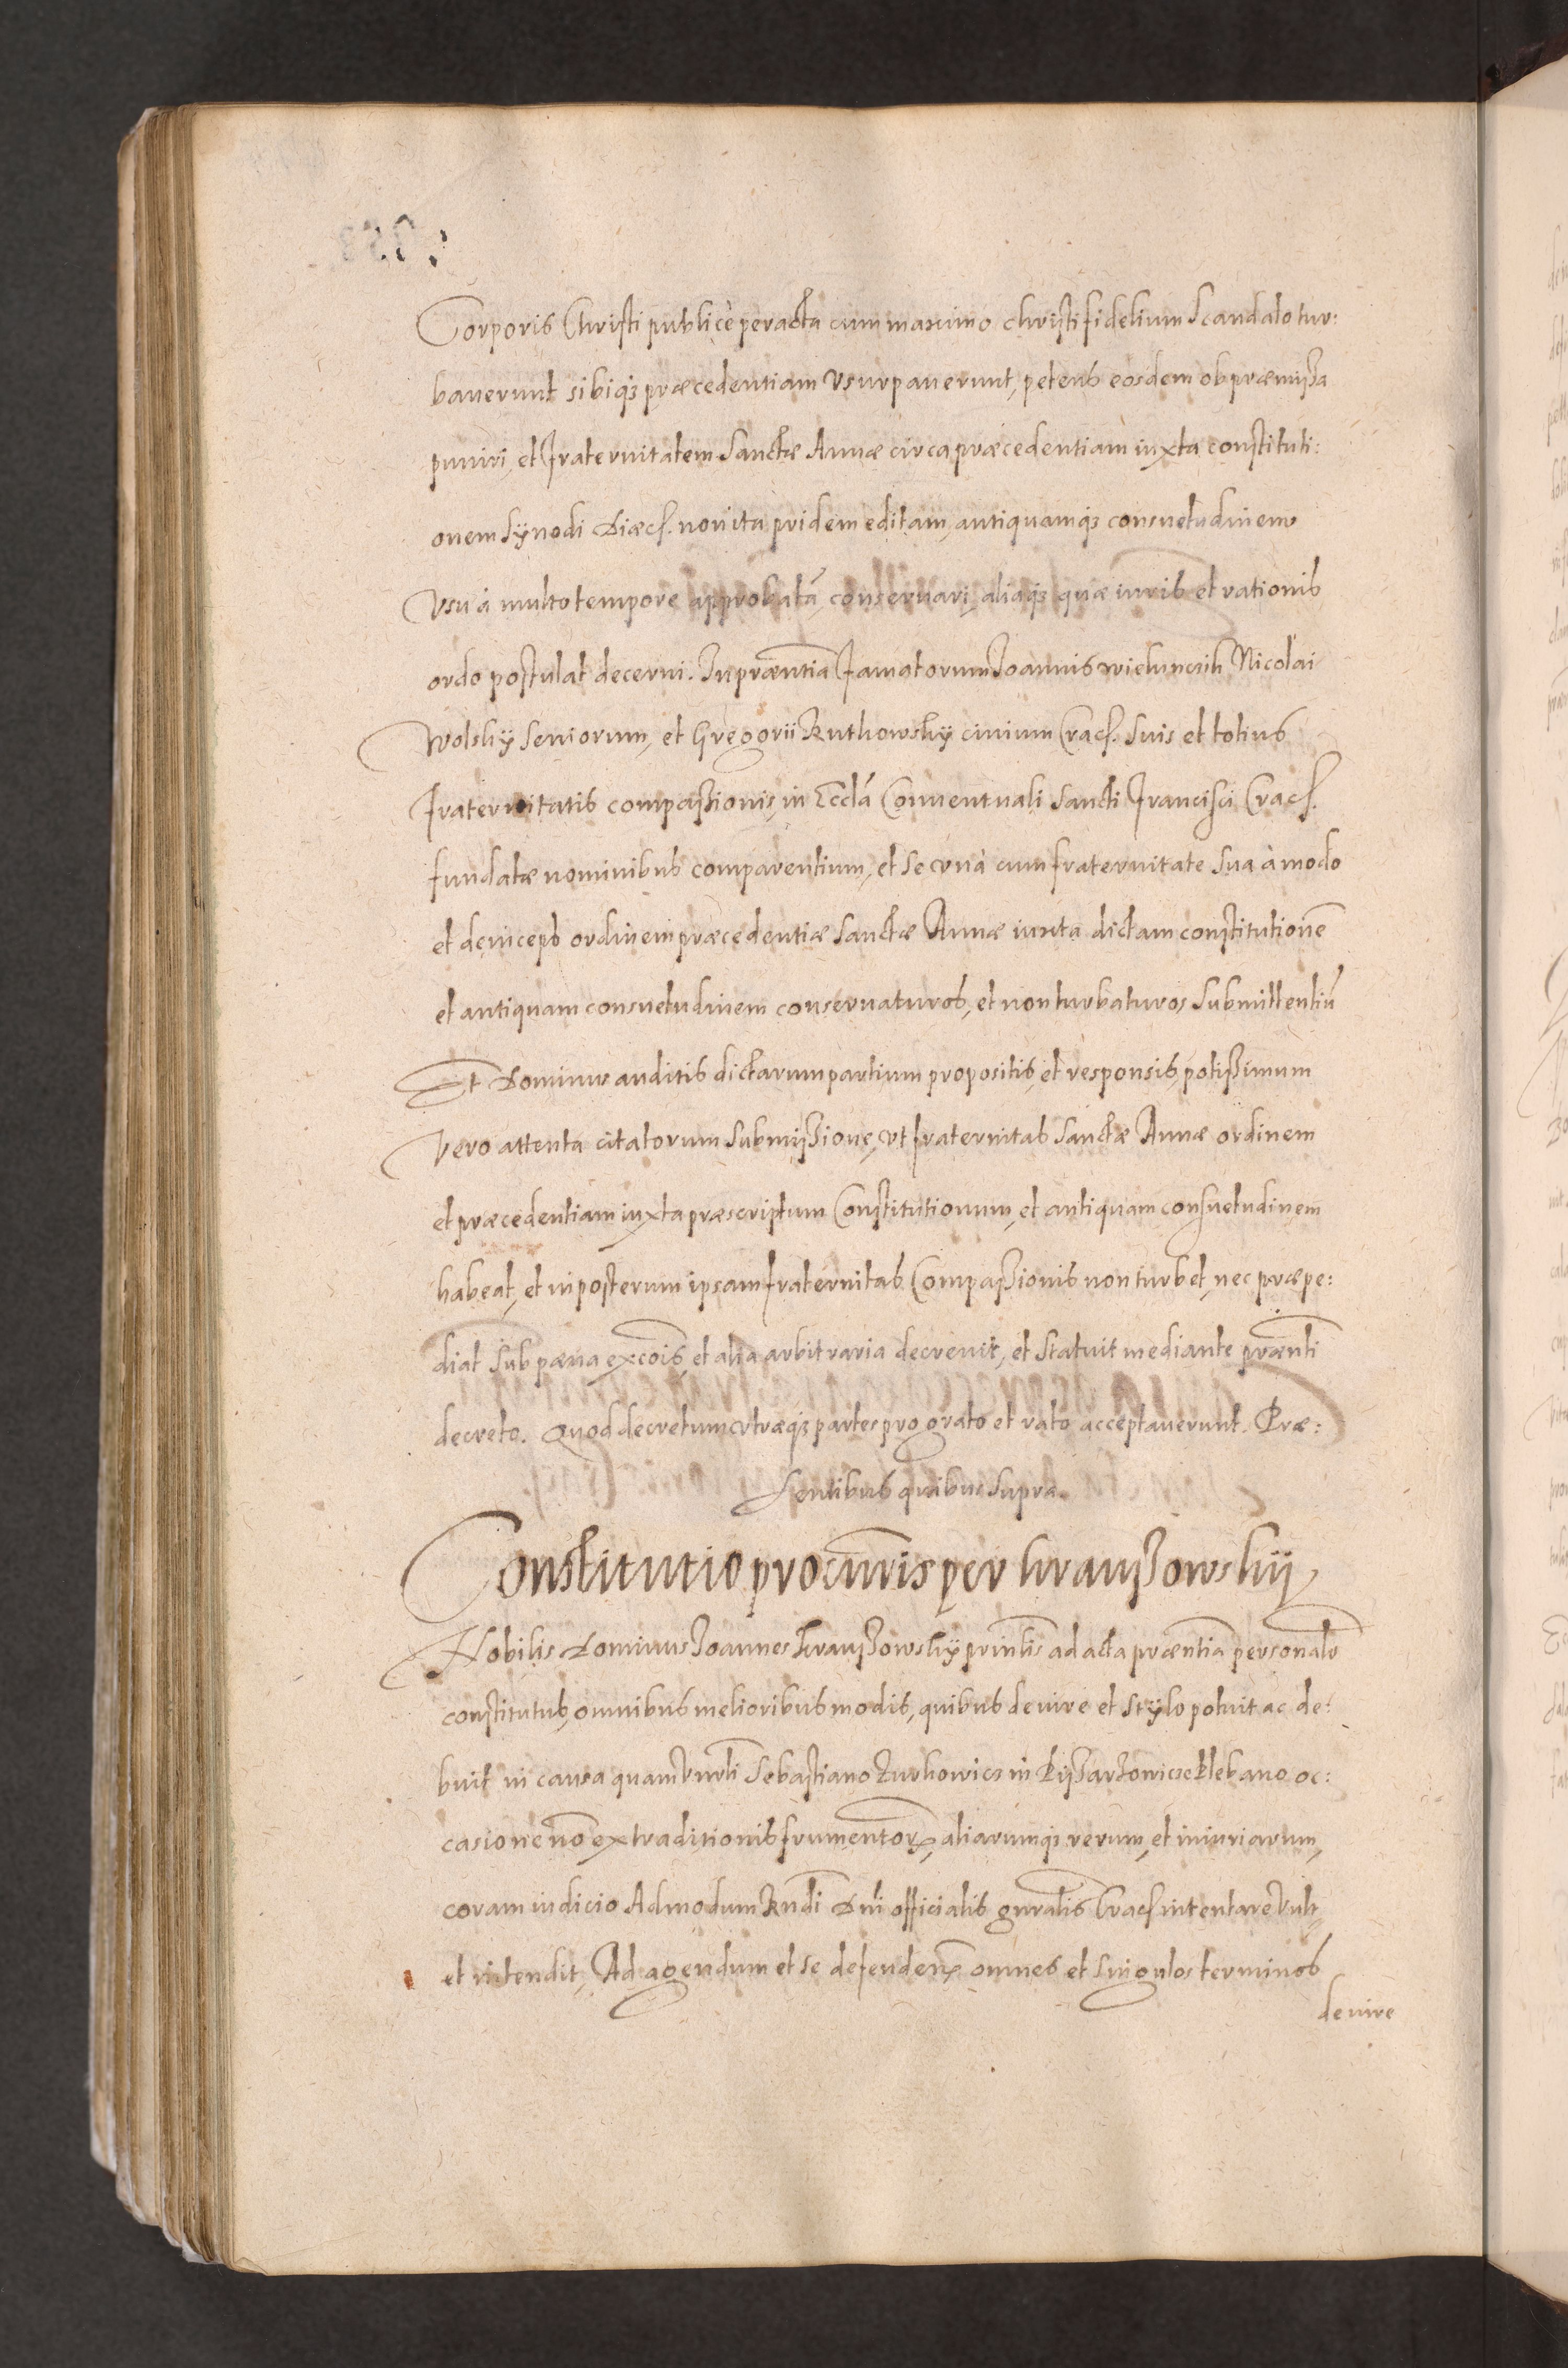 Corporis Christi publicè peracta cum maximo christifidelium Scandalo tur:
baverunt sibiq3 præcedentiam Vsurpaverunt, petens eosdem ob præmißa
puniri, et fraternitatem Sanctæ Annæ circa præcedentiam iuxta constituti:
onem Sÿnodi Diæcs. non ita pridem editam, antiquamq3 consuetudinem
Vsu à multo tempore approbatā conservari, aliaq3 quæ iuris et rationis
ordo postulat decerni. In præntia famatorum Joannis Nicolai
Wolskÿ Seniorum, et Gregorii Ruthowskÿ civium Cracs. Suis et totius
fraternitatis compaßionis, in Eccla Conventuali Sancti Francisci Cracs.
fundatæ nominibus comparentium, et se vnà cum fraternitate Sua àmodo
et deinceps ordinem præcedentiæ Sanctæ Annæ iuxta dictam constitutionē
et antiquam consuetudinem conservaturos, et non turbaturos Submittentiū
Et Dominus auditis dictarum partium propositis, et responsis, potißimum
Vero attenta citatorum Submißione, vt fraternitas Sanctæ Annæ ordinem
et præcedentiam iuxta præscriptum Constitutionum, et antiquam consuetudinem
habeat, et in posterum ipsam fraternitas Compaßionis non turbet, nec præpe:
diat Sub pæna excois, et alia arbitraria decrevit, et Statuit mediante prænti
decreto. Quod decretum vtræq3 partes pro grato et rato acceptaverunt. Præ:
sentibus quibus Supra.
Constitutio procuris per kraußowskij
Nobilis Dominus Joannes Kraußowskÿ prinlis ad acta præntia personalr
constitutus, omnibus melioribus modis, quibus de iure et Stÿlo potuit ac de:
buit in causa quam Vnrli Sebastiano Zurkowicz in Plebano oc:
casione nō extraditionis frumentorū, aliarumq3 rerum, et iniuriarum,
coram iudicio Admodum Rndi Dni officialis gnralis Cracs intentare Vult,
et intendit, Ad agendum et se defendenū omnes et Singulos terminos
de iure